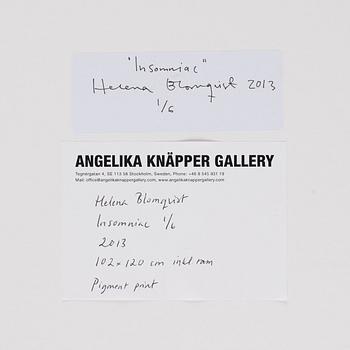 "Insomniac"
Helena Blomqvist 2013
1/6
ANGELIKA KNÄPPER GALLERY
Tegnérgatan 4, SE 113 58 Stockholm, Sweden, Phone: +46 8 545 931 19
Mail: office@angelikaknappergallery.com, www.angelikaknappergallery.com
Helena Blomqvist
Insomniac 1/6
2013
102 x 120 cm inkl ram
Pigment print